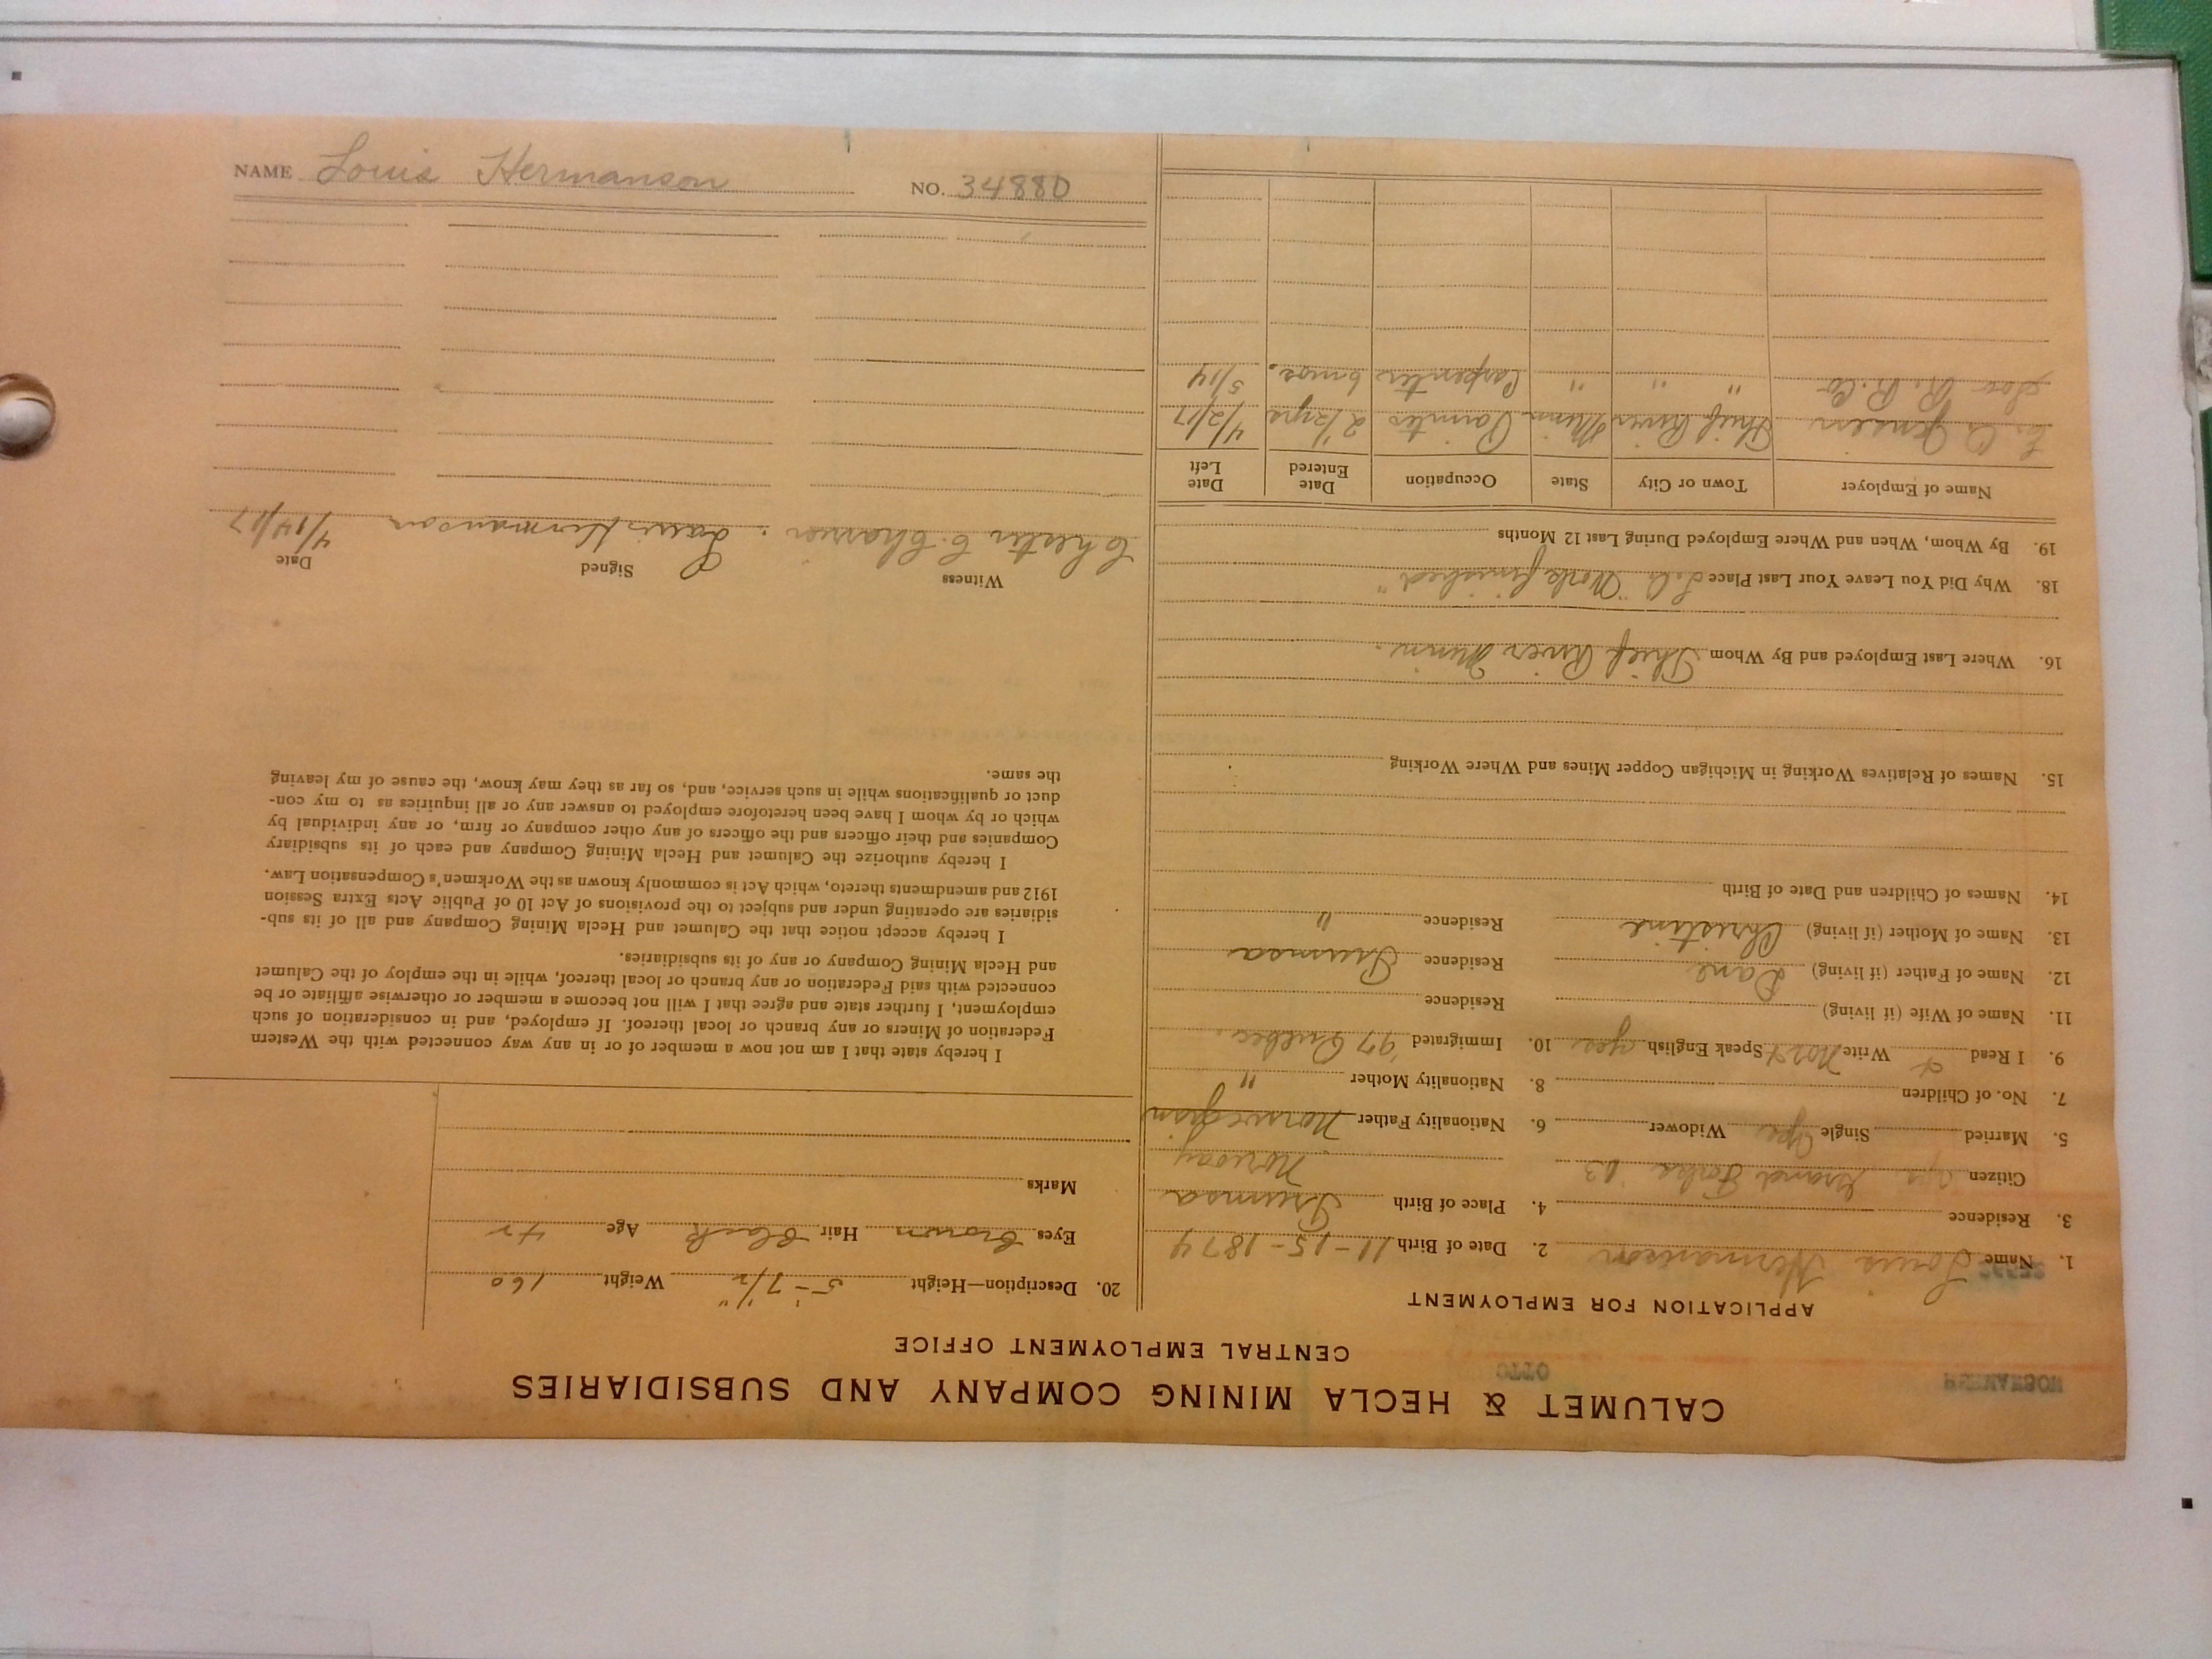 NAME Louis Hermanson NO. 34880
CALUMET & HECLA MINING COMPANY AND SUBSIDIARIES
CENTRAL EMPLOYMENT OFFICE
APPLICATION FOR EMPLOYMENT
1. Name Louis Hermanson 2. Date of Birth 11-15-1874
3. Residence 4. Place of Birth Trumsa
Citizen yes Grand Forks '03 Norway
5. Married Single yes Widower 6. Nationality Father Norwegian
7. No. of Children 8. Nationality Mother "
9. I Read & Write Nor & Speak English yes 10. Immigrated '97 Quebec.
11. Name of Wife (if living) Residence
12. Name of Father (if living) Dane Residence Trumsa
13. Name of Mother (if living) Christine Residence "
14. Names of Children and Date of Birth
15. Names of Relatives Working in Michigan Copper Mines and Where Working
16. Where Last Employed and By Whom Thief River Minn.
18. Why Did You Leave Your Last Place "Work finished"
19. By Whom, When and Where Employed During Last 12 Months
Name of Employer Town or City State Occupation Date Entered Date Left
Jensen Thief River Minn Painter 2 1/2 yrs 4/2/17
Soo R. R. Co " " " Carpenter 6 mos. 5/14
20. Description—Height 5'-7 1/2" Weight 160
Eyes Brown Hair Black Age 42
Marks
I hereby state that I am not now a member of or in any way connected with the Western
Federation of Miners or any branch or local thereof. If employed, and in consideration of such
employment, I further state and agree that I will not become a member or otherwise affiliate or be
connected with said Federation or any branch or local thereof, while in the employ of the Calumet
and Hecla Mining Company or any of its subsidiaries.
I hereby accept notice that the Calumet and Hecla Mining Company and all of its sub-
sidiaries are operating under and subject to the provisions of Act 10 of Public Acts Extra Session
1912 and amendments thereto, which Act is commonly known as the Workmen's Compensation Law.
I hereby authorize the Calumet and Hecla Mining Company and each of its subsidiary
Companies and their officers and the officers of any other company or firm, or any individual by
which or by whom I have been heretofore employed to answer any or all inquiries as to my con-
duct or qualifications while in such service, and, so far as they may know, the cause of my leaving
the same.
Witness Signed Date
Chester C. Louis Hermanson 4/14/17